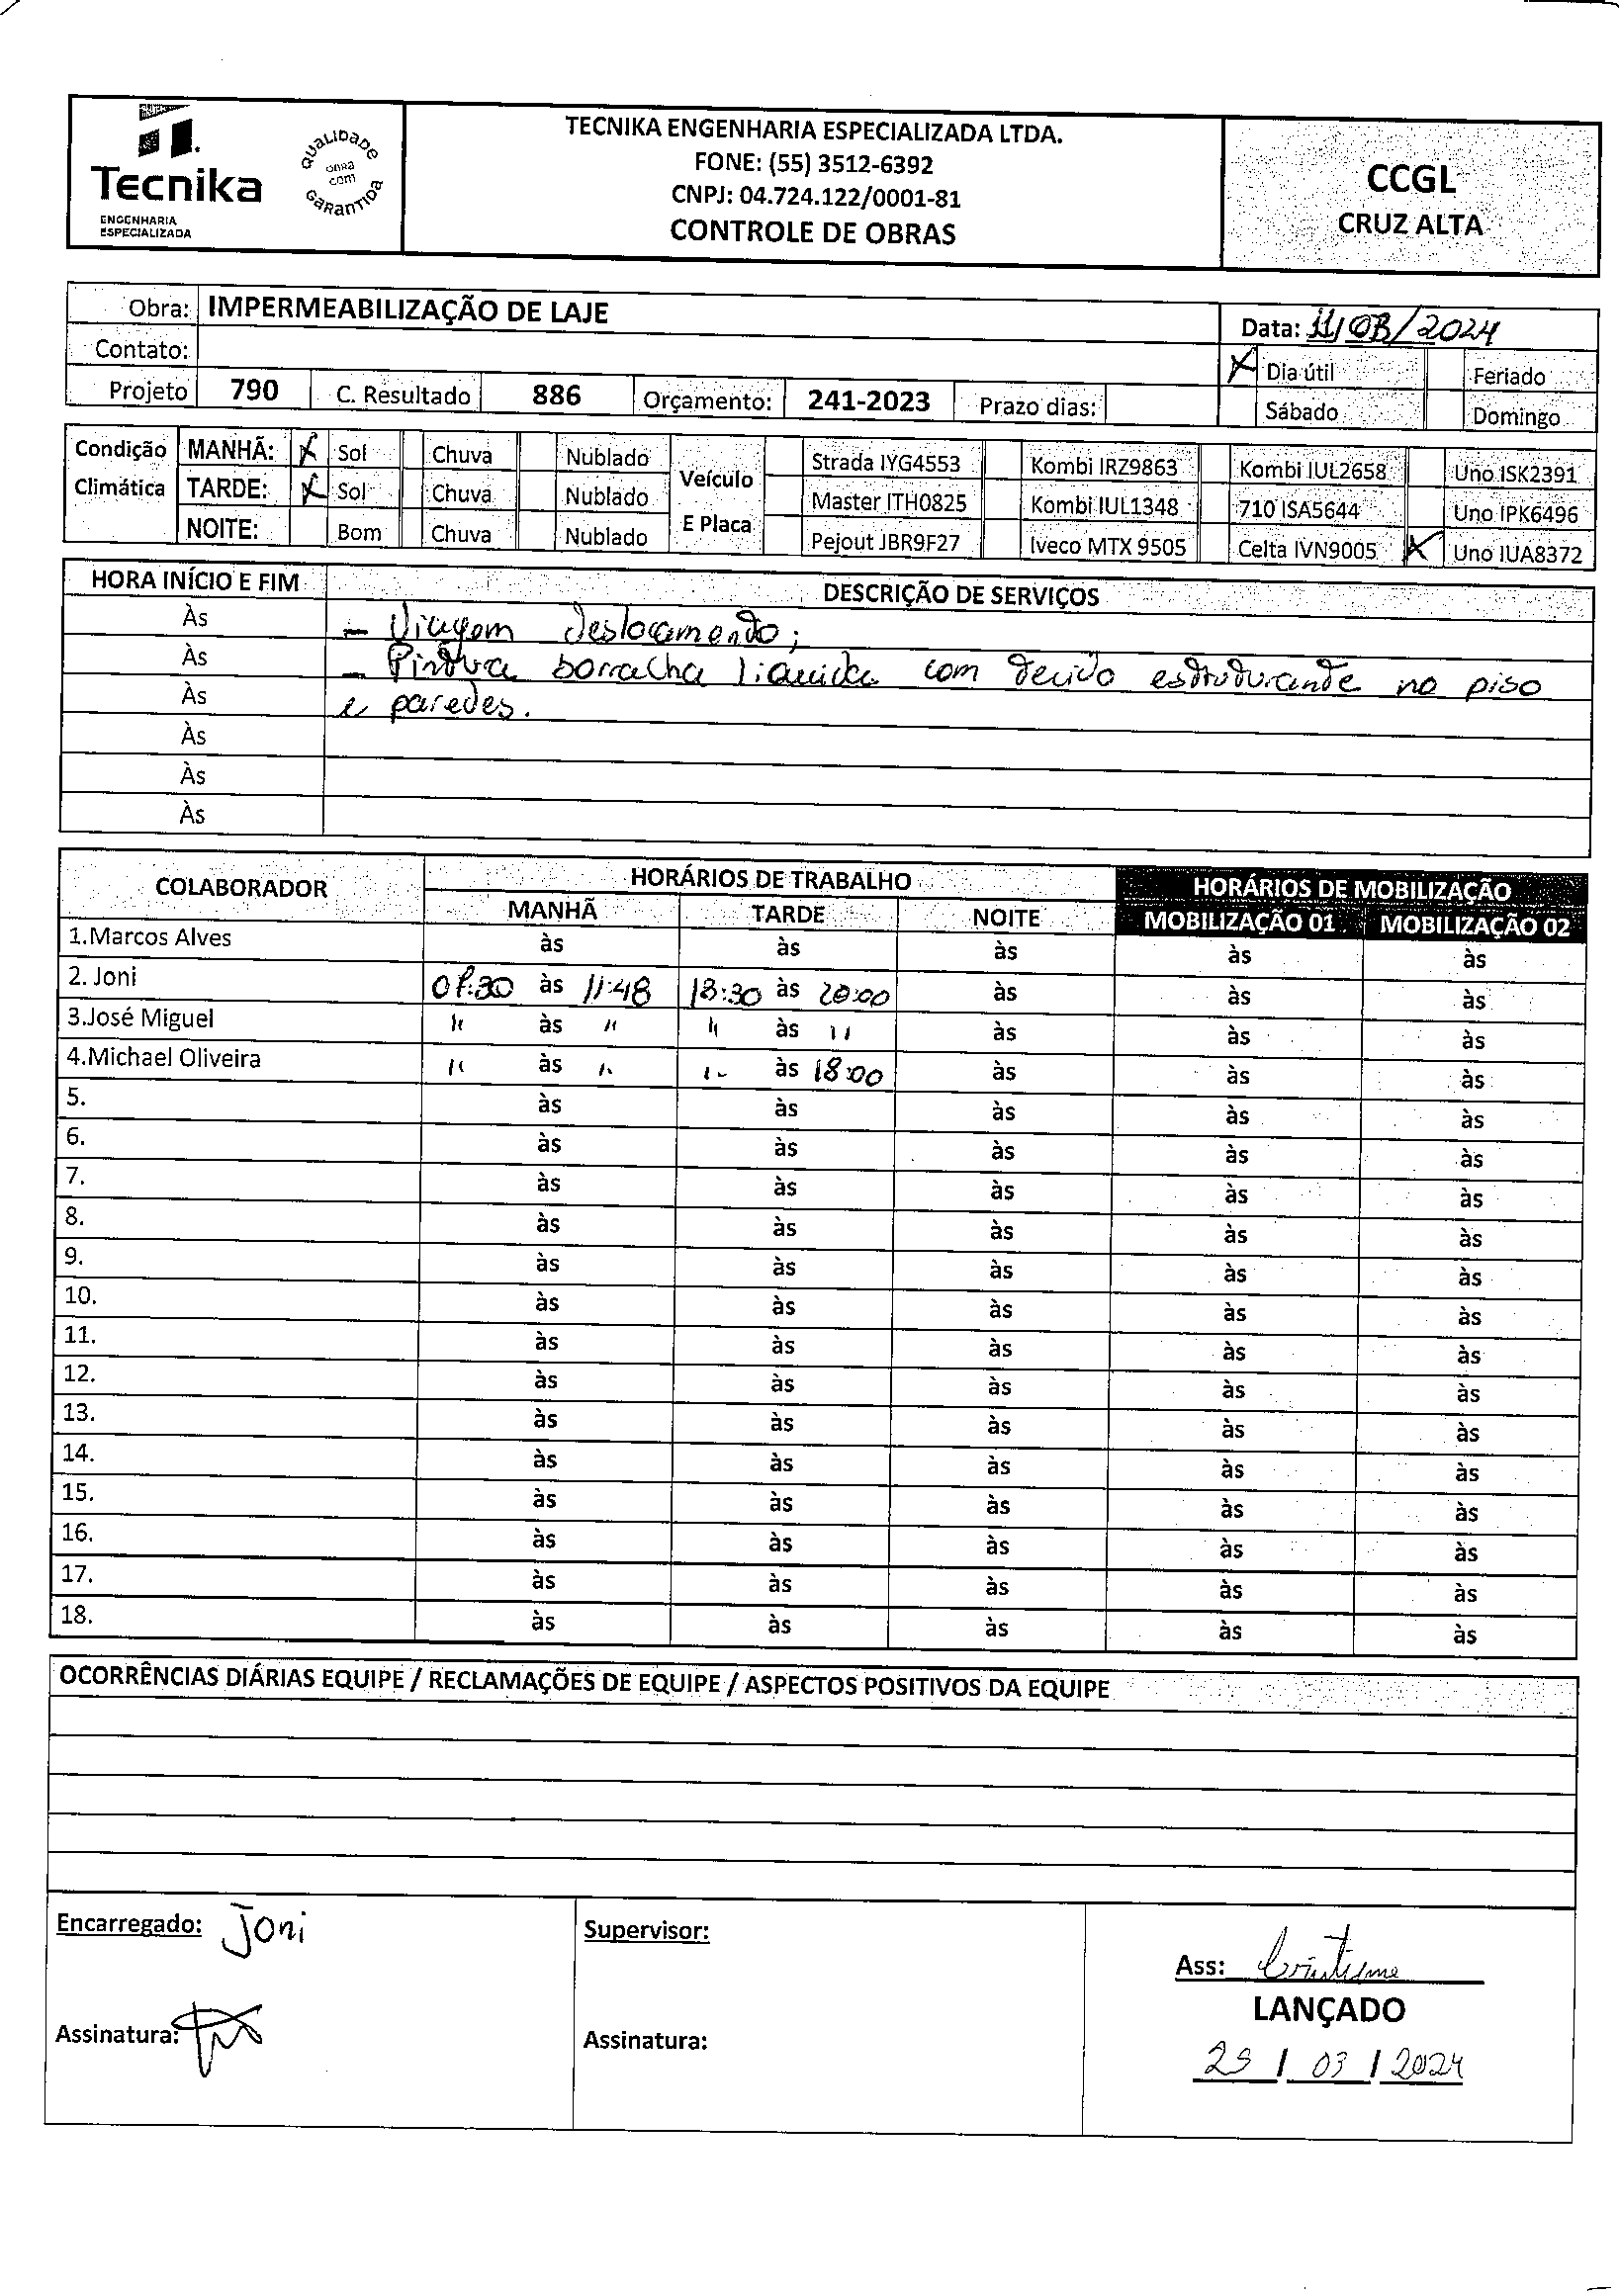 Tecnika
ENGENHARIA
ESPECIALIZADA
QUALIDADE
OBRA
COM
GARANTIDA
TECNIKA ENGENHARIA ESPECIALIZADA LTDA.
FONE: (55) 3512-6392
CNPJ: 04.724.122/0001-81
CONTROLE DE OBRAS
CCGL
CRUZ ALTA
Obra: IMPERMEABILIZAÇÃO DE LAJE
Data: 11/03/2024
Contato:
X Dia útil Feriado
Projeto 790 C. Resultado 886 Orçamento: 241-2023 Prazo dias:
Sábado Domingo
Condição Climática
MANHÃ: X Sol Chuva Nublado
TARDE: X Sol Chuva Nublado
NOITE: Bom Chuva Nublado
Veículo E Placa
Strada IYG4553 Kombi IRZ9863 Kombi IUL2658 Uno ISK2391
Master ITH0825 Kombi IUL1348 710 ISA5644 Uno IPK6496
Pejout JBR9F27 Iveco MTX 9505 Celta IVN9005 X Uno IUA8372
HORA INÍCIO E FIM DESCRIÇÃO DE SERVIÇOS
Às - Viagem deslocamento;
Às - Pintura borracha liquida com tecido estruturante no piso
Às e paredes.
Às
Às
Às
COLABORADOR HORÁRIOS DE TRABALHO HORÁRIOS DE MOBILIZAÇÃO
MANHÃ TARDE NOITE MOBILIZAÇÃO 01 MOBILIZAÇÃO 02
1.Marcos Alves às às às às às
2. Joni 07:30 às 11:48 13:30 às 20:00 às às às
3.José Miguel " às " " às " às às às
4.Michael Oliveira " às " " às 18:00 às às às
5. às às às às às
6. às às às às às
7. às às às às às
8. às às às às às
9. às às às às às
10. às às às às às
11. às às às às às
12. às às às às às
13. às às às às às
14. às às às às às
15. às às às às às
16. às às às às às
17. às às às às às
18. às às às às às
OCORRÊNCIAS DIÁRIAS EQUIPE / RECLAMAÇÕES DE EQUIPE / ASPECTOS POSITIVOS DA EQUIPE
Encarregado: Joni
Assinatura:
Supervisor:
Assinatura:
Ass:
LANÇADO
29 / 03 / 2024